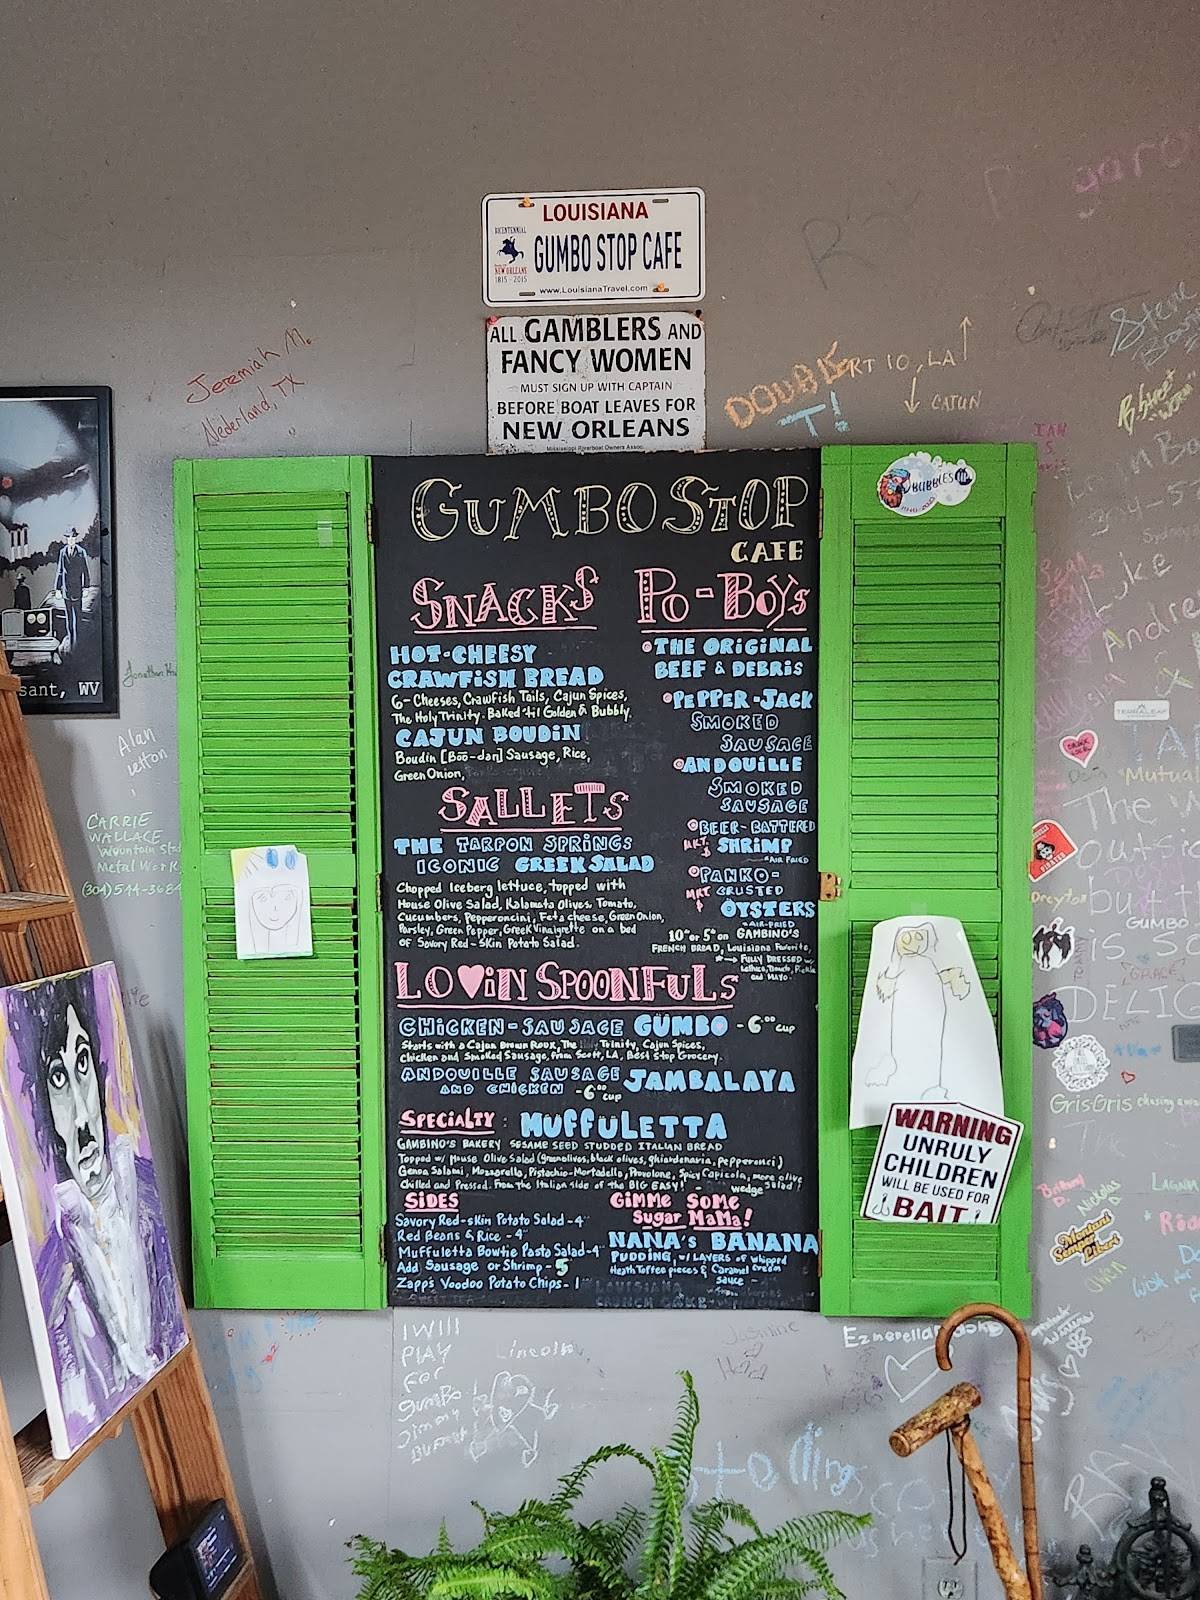 LOUISIANA
BICENTENNIAL
NEW ORLEANS
1815 - 2015
GUMBO STOP CAFE
www.LouisianaTravel.com
ALL GAMBLERS AND
FANCY WOMEN
MUST SIGN UP WITH CAPTAIN
BEFORE BOAT LEAVES FOR
NEW ORLEANS
Mississippi Riverboat Owners Assoc.
Jeremiah M.
Nederland, TX
DOUBLE
T!
RT 10, LA
CAJUN
Steve
B. Street
"WORM"
IAN
S.
sant, WV
Alan
CARRIE
WALLACE
Mountain
Metal Work
(304) 544-3684
GUMBO STOP
CAFE
SNACKS
HOT-CHEESY
CRAWFISH BREAD
6-Cheeses, Crawfish Tails, Cajun Spices,
The Holy Trinity. Baked 'til Golden & Bubbly.
CAJUN BOUDIN
Boudin [Boo-dan] Sausage, Rice,
Green Onion,
SALLETS
THE TARPON SPRINGS
ICONIC GREEK SALAD
Chopped Iceberg lettuce, topped with
House Olive Salad, Kalamata Olives, Tomato,
Cucumbers, Pepperoncini, Feta cheese, Green Onion,
Parsley, Green Pepper, Greek Vinaigrette on a bed
of Savory Red-Skin Potato Salad.
PO-BOYS
THE ORIGINAL
BEEF & DEBRIS
PEPPER-JACK
SMOKED
SAUSAGE
ANDOUILLE
SMOKED
SAUSAGE
BEER-BATTERED
MKT. $ SHRIMP
AIR FRIED
PANKO-
MKT $ CRUSTED
OYSTERS
AIR-FRIED
10" or 5" on GAMBINO'S
FRENCH BREAD, Louisiana Favorite,
FULLY DRESSED w/
Lettuce, Tomato, Pickle
and MAYO.
LOViN SPOONFULS
CHICKEN-SAUSAGE GUMBO - 6.00 cup
Starts with a Cajun Brown Roux, The Holy Trinity, Cajun Spices,
Chicken and Smoked Sausage, from Scott, LA, Best Stop Grocery.
ANDOUILLE SAUSAGE
AND CHICKEN - 6.00 cup JAMBALAYA
SPECIALTY: MUFFULETTA
GAMBINO'S BAKERY SESAME SEED STUDDED ITALIAN BREAD
Topped w/ House Olive Salad (greenolives, black olives, ghiardenaria, pepperonci)
Genoa Salami, Mozzarella, Pistachio-Mortadella, Provolone, Spicy Capicola, more olive
Chilled and Pressed. From the Italian side of the BIG EASY! - wedge salad!
SIDES
Savory Red-skin Potato Salad - 4
Red Beans & Rice - 4
Muffuletta Bowtie Pasta Salad - 4
Add Sausage or Shrimp - 5
Zapp's Voodoo Potato Chips - 1
GIMME SOME
Sugar MaMa!
NANA'S BANANA
PUDDING, w/ LAYERS of Whipped
Heath Toffee pieces & Caramel Cream
sauce -
BUBBLES
WARNING
UNRULY
CHILDREN
WILL BE USED FOR
BAIT
Luke
Andrew
TERRALEAF
"Mutual
The
outside
but
is so
GUMBO
GRACE
DELIC
Dreyton
GrisGris
LAGUNA
Nicholas
Montani
Semper
Liberi
I WILL
PLAY
FOR
GUMBO
Jimmy
Buffett
Lincoln
Jasmine